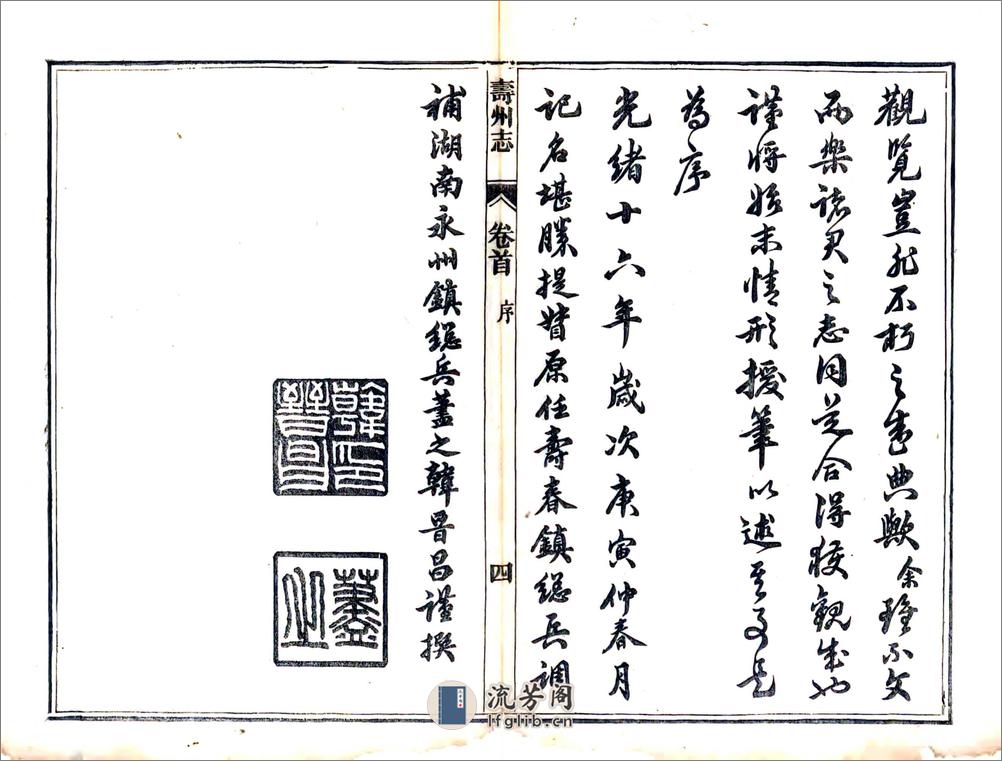 觀覽豈能不朽之盛典歟余雖不文
而樂諸君之志同道合得獲觀成也
謹將始末情形援筆以述其事是
為序
光緒十六年歲次庚寅仲春月
記名堪勝提督原任壽春鎮總兵調
壽州志 卷首 序 四
補湖南永州鎮總兵藎之韓晉昌謹撰
韓印晉昌
藎之
流芳阁
lfglib.cn